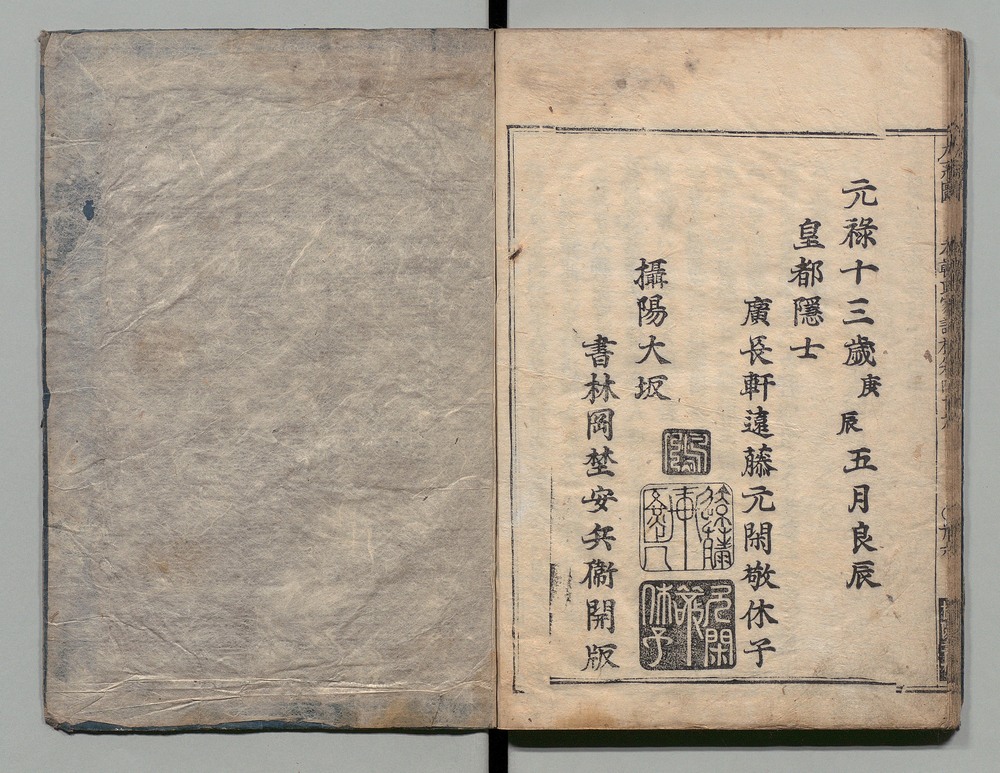 元祿十三歲庚辰五月良辰
皇都隱士
廣長軒遠藤元閑敬休子
攝陽大坂
書林岡埜安兵衞開版
元閑
敬
休子